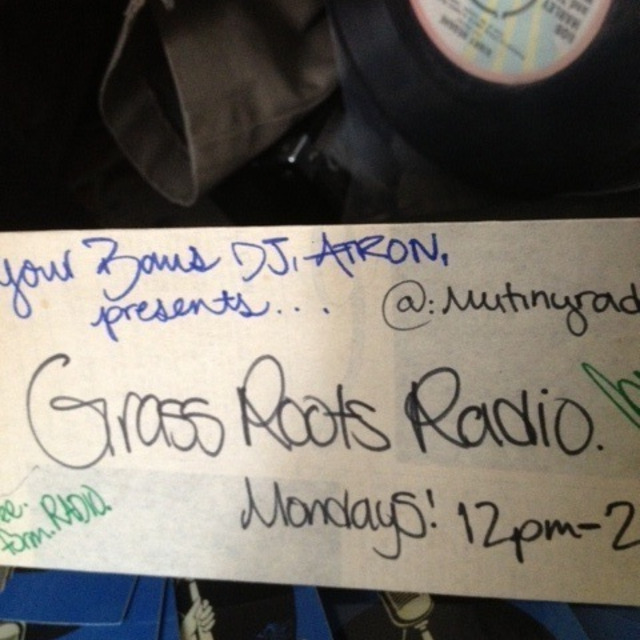 your DJ, ATRON,
presents...
@: Mutinyrad
Grass Roots Radio.
Mondays! 12pm-2
RADIO